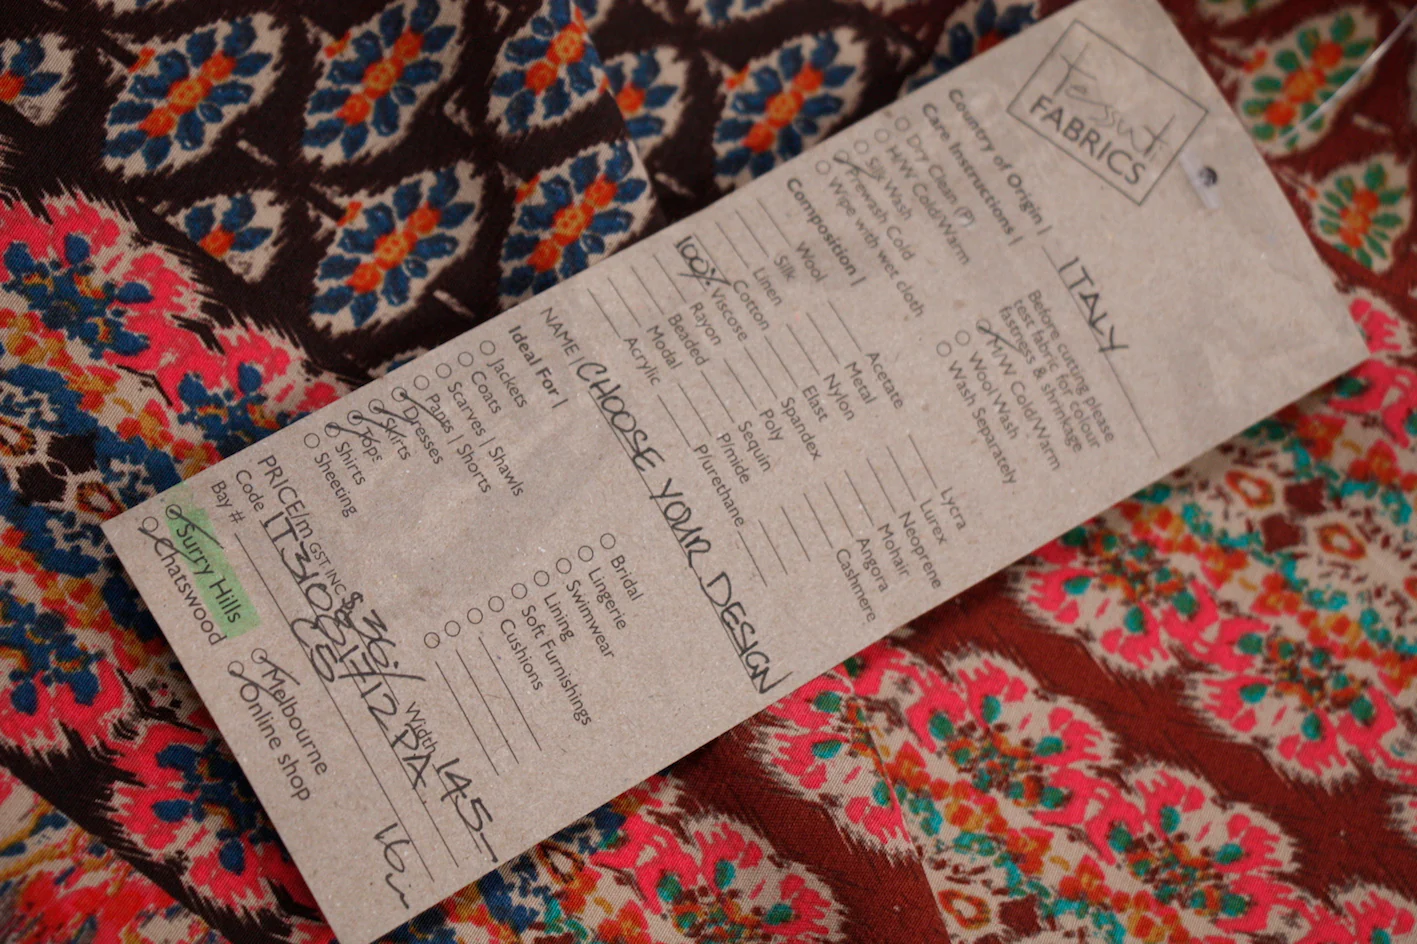 Tessuti
FABRICS
Country of Origin | ITALY
Care Instructions |
Dry Clean (P)
H/W Cold/Warm
Silk Wash
Prewash Cold
Wipe with wet cloth
Before cutting please
test fabric for colour
fastness & shrinkage
H/W Cold/Warm
Wool Wash
Wash Separately
Composition |
Wool
Silk
Linen
Cotton
100% Viscose
Rayon
Beaded
Modal
Acrylic
Acetate
Metal
Nylon
Elast
Spandex
Poly
Sequin
P/mide
P/urethane
Lycra
Lurex
Neoprene
Mohair
Angora
Cashmere
NAME | CHOOSE YOUR DESIGN
Ideal For |
Jackets
Coats
Scarves | Shawls
Pants | Shorts
Dresses
Skirts
Tops
Shirts
Sheeting
Bridal
Lingerie
Swimwear
Lining
Soft Furnishings
Cushions
PRICE/m GST INC $36/- Width 145-
Code
Bay #
Surry Hills
Chatswood
Melbourne
Online shop